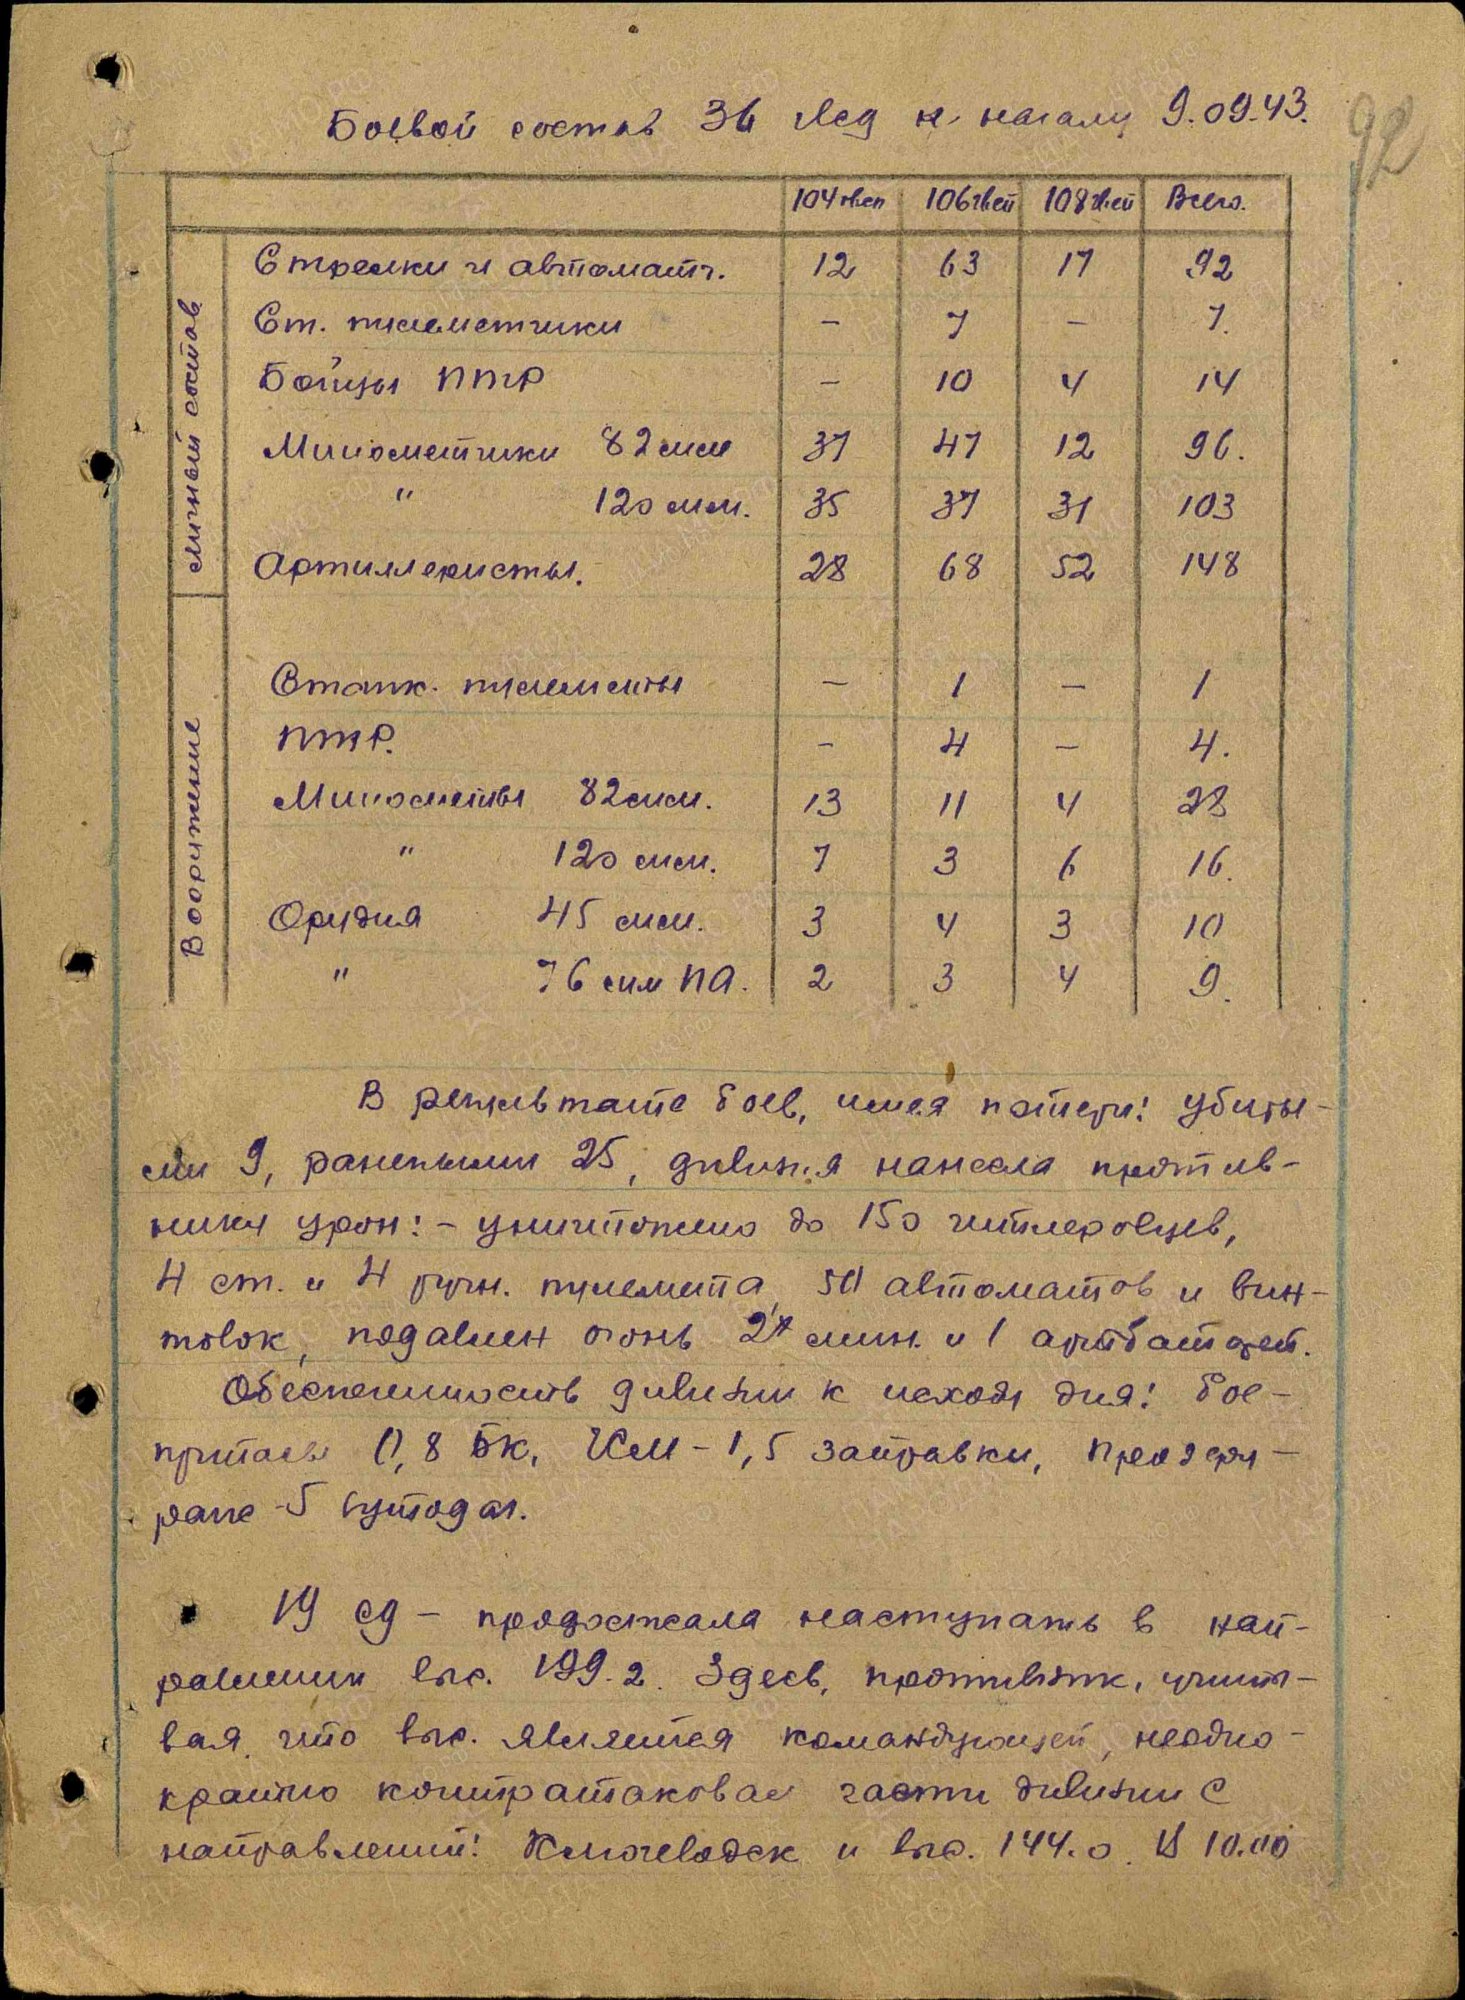 92
Боевой состав 36 гвсд к началу 9.09.43.
104 гвсп 106 гвсп 108 гвсп Всего.
Личный состав
Стрелки и автоматч. 12 63 17 92
Ст. пулеметчики – 7 – 7.
Бойцы ПТР – 10 4 14
Минометчики 82 мм 37 47 12 96.
" 120 мм. 35 37 31 103
Артиллеристы. 28 68 52 148
Вооружение
Станк. пулеметы – 1 – 1
ПТР. – 4 – 4.
Минометы 82 мм. 13 11 4 28
" 120 мм. 7 3 6 16.
Орудия 45 мм. 3 4 3 10
" 76 мм ПА. 2 3 4 9.
В результате боев, имея потери: убиты-
ми 9, ранеными 25, дивизия нанесла против-
нику урон: – уничтожено до 150 гитлеровцев,
4 ст. и 4 ручн. пулемета, 50 автоматов и вин-
товок, подавлен огонь мин. и 1 артбатарей.
Обеспеченность дивизии к исходу дня: бое-
припасы 0,8 БК, ГСМ – 1,5 заправки, продфу-
раж – 5 сутодач.
19 сд – продолжала наступать в нап-
равлении выс. 199.2. Здесь, противник, учиты-
вая, что выс. является командующей, неодно-
кратно контратаковал части дивизии с
направлений: Ключеводск и выс. 144.0. В 10.00